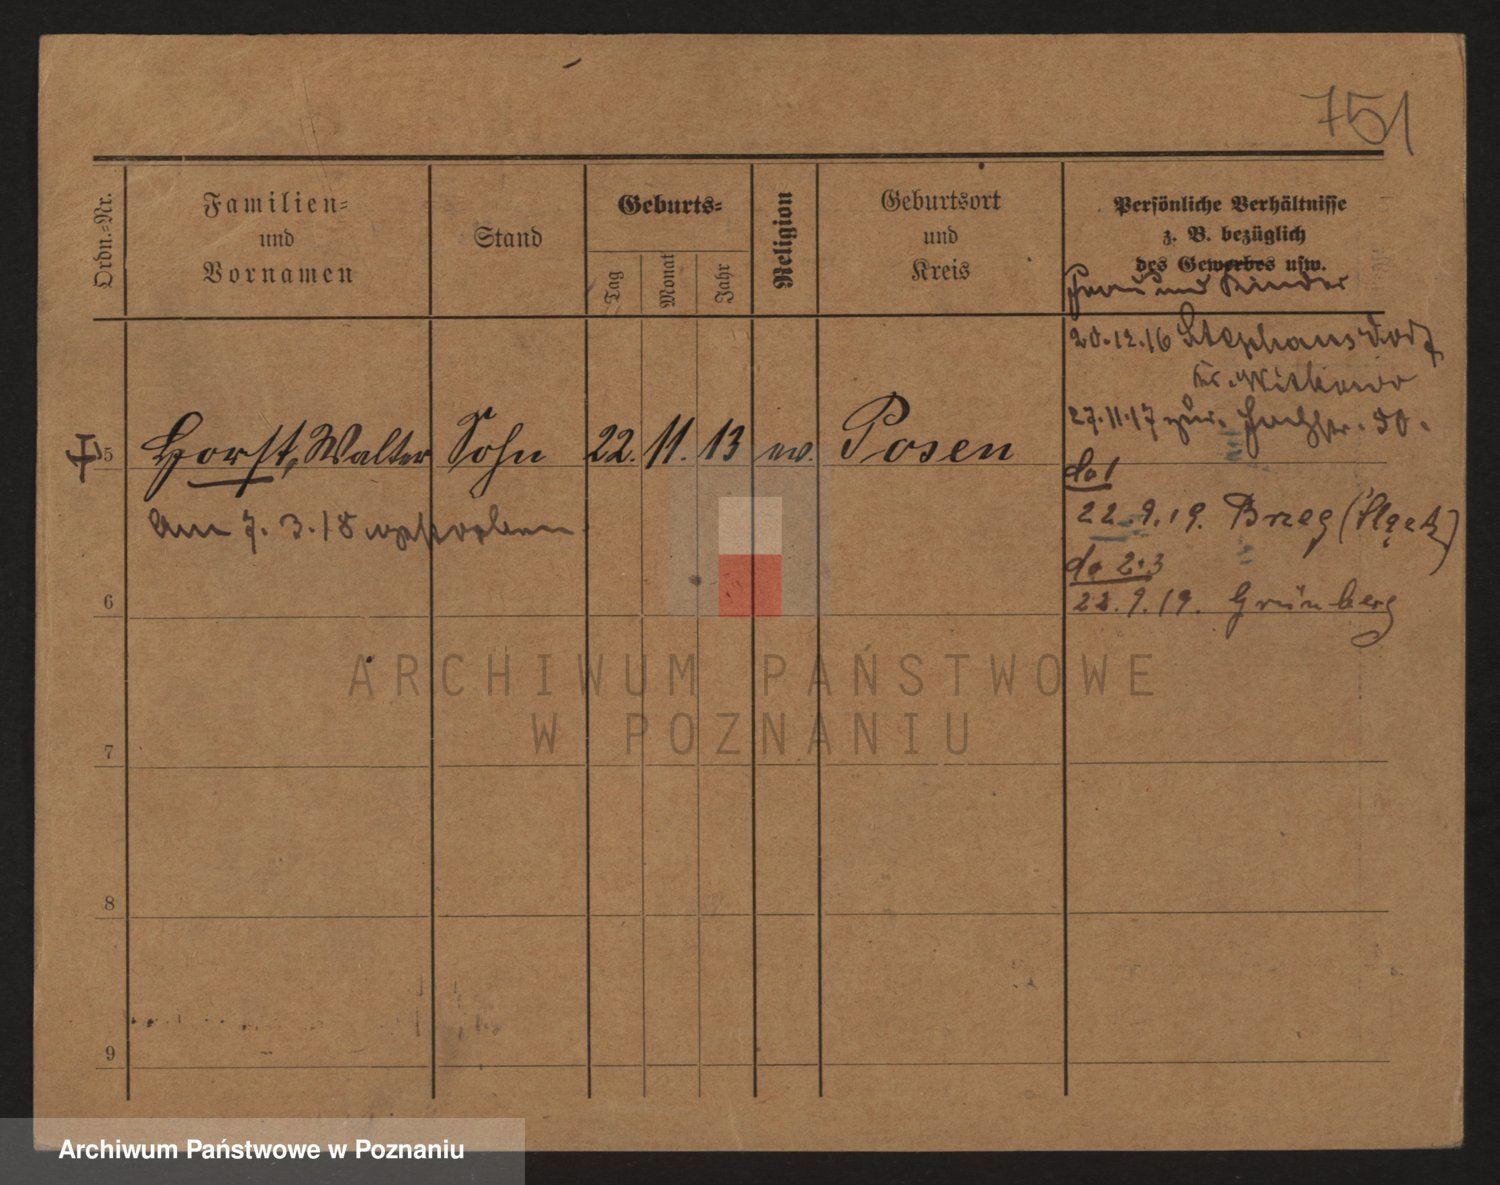 751
Ordn.=Nr.
Familien=
und
Vornamen
Stand
Geburts=
Tag
Monat
Jahr
Religion
Geburtsort
und
Kreis
Persönliche Verhältnisse
z. B. bezüglich
des Gewerbes usw.
Frau und Kinder
20.12.16 Stephansdorf
Kr. Witkowo
27.11.17 zur.
5 Horst, Walter Sohn 22. 11. 13 ev. Posen
do 1
am 7. 3. 18 verstorben.
22.9.19. Brzeg
do 2.3
6
22.9.19. Grünberg
ARCHIWUM PAŃSTWOWE
W POZNANIU
7
8
9
Archiwum Państwowe w Poznaniu